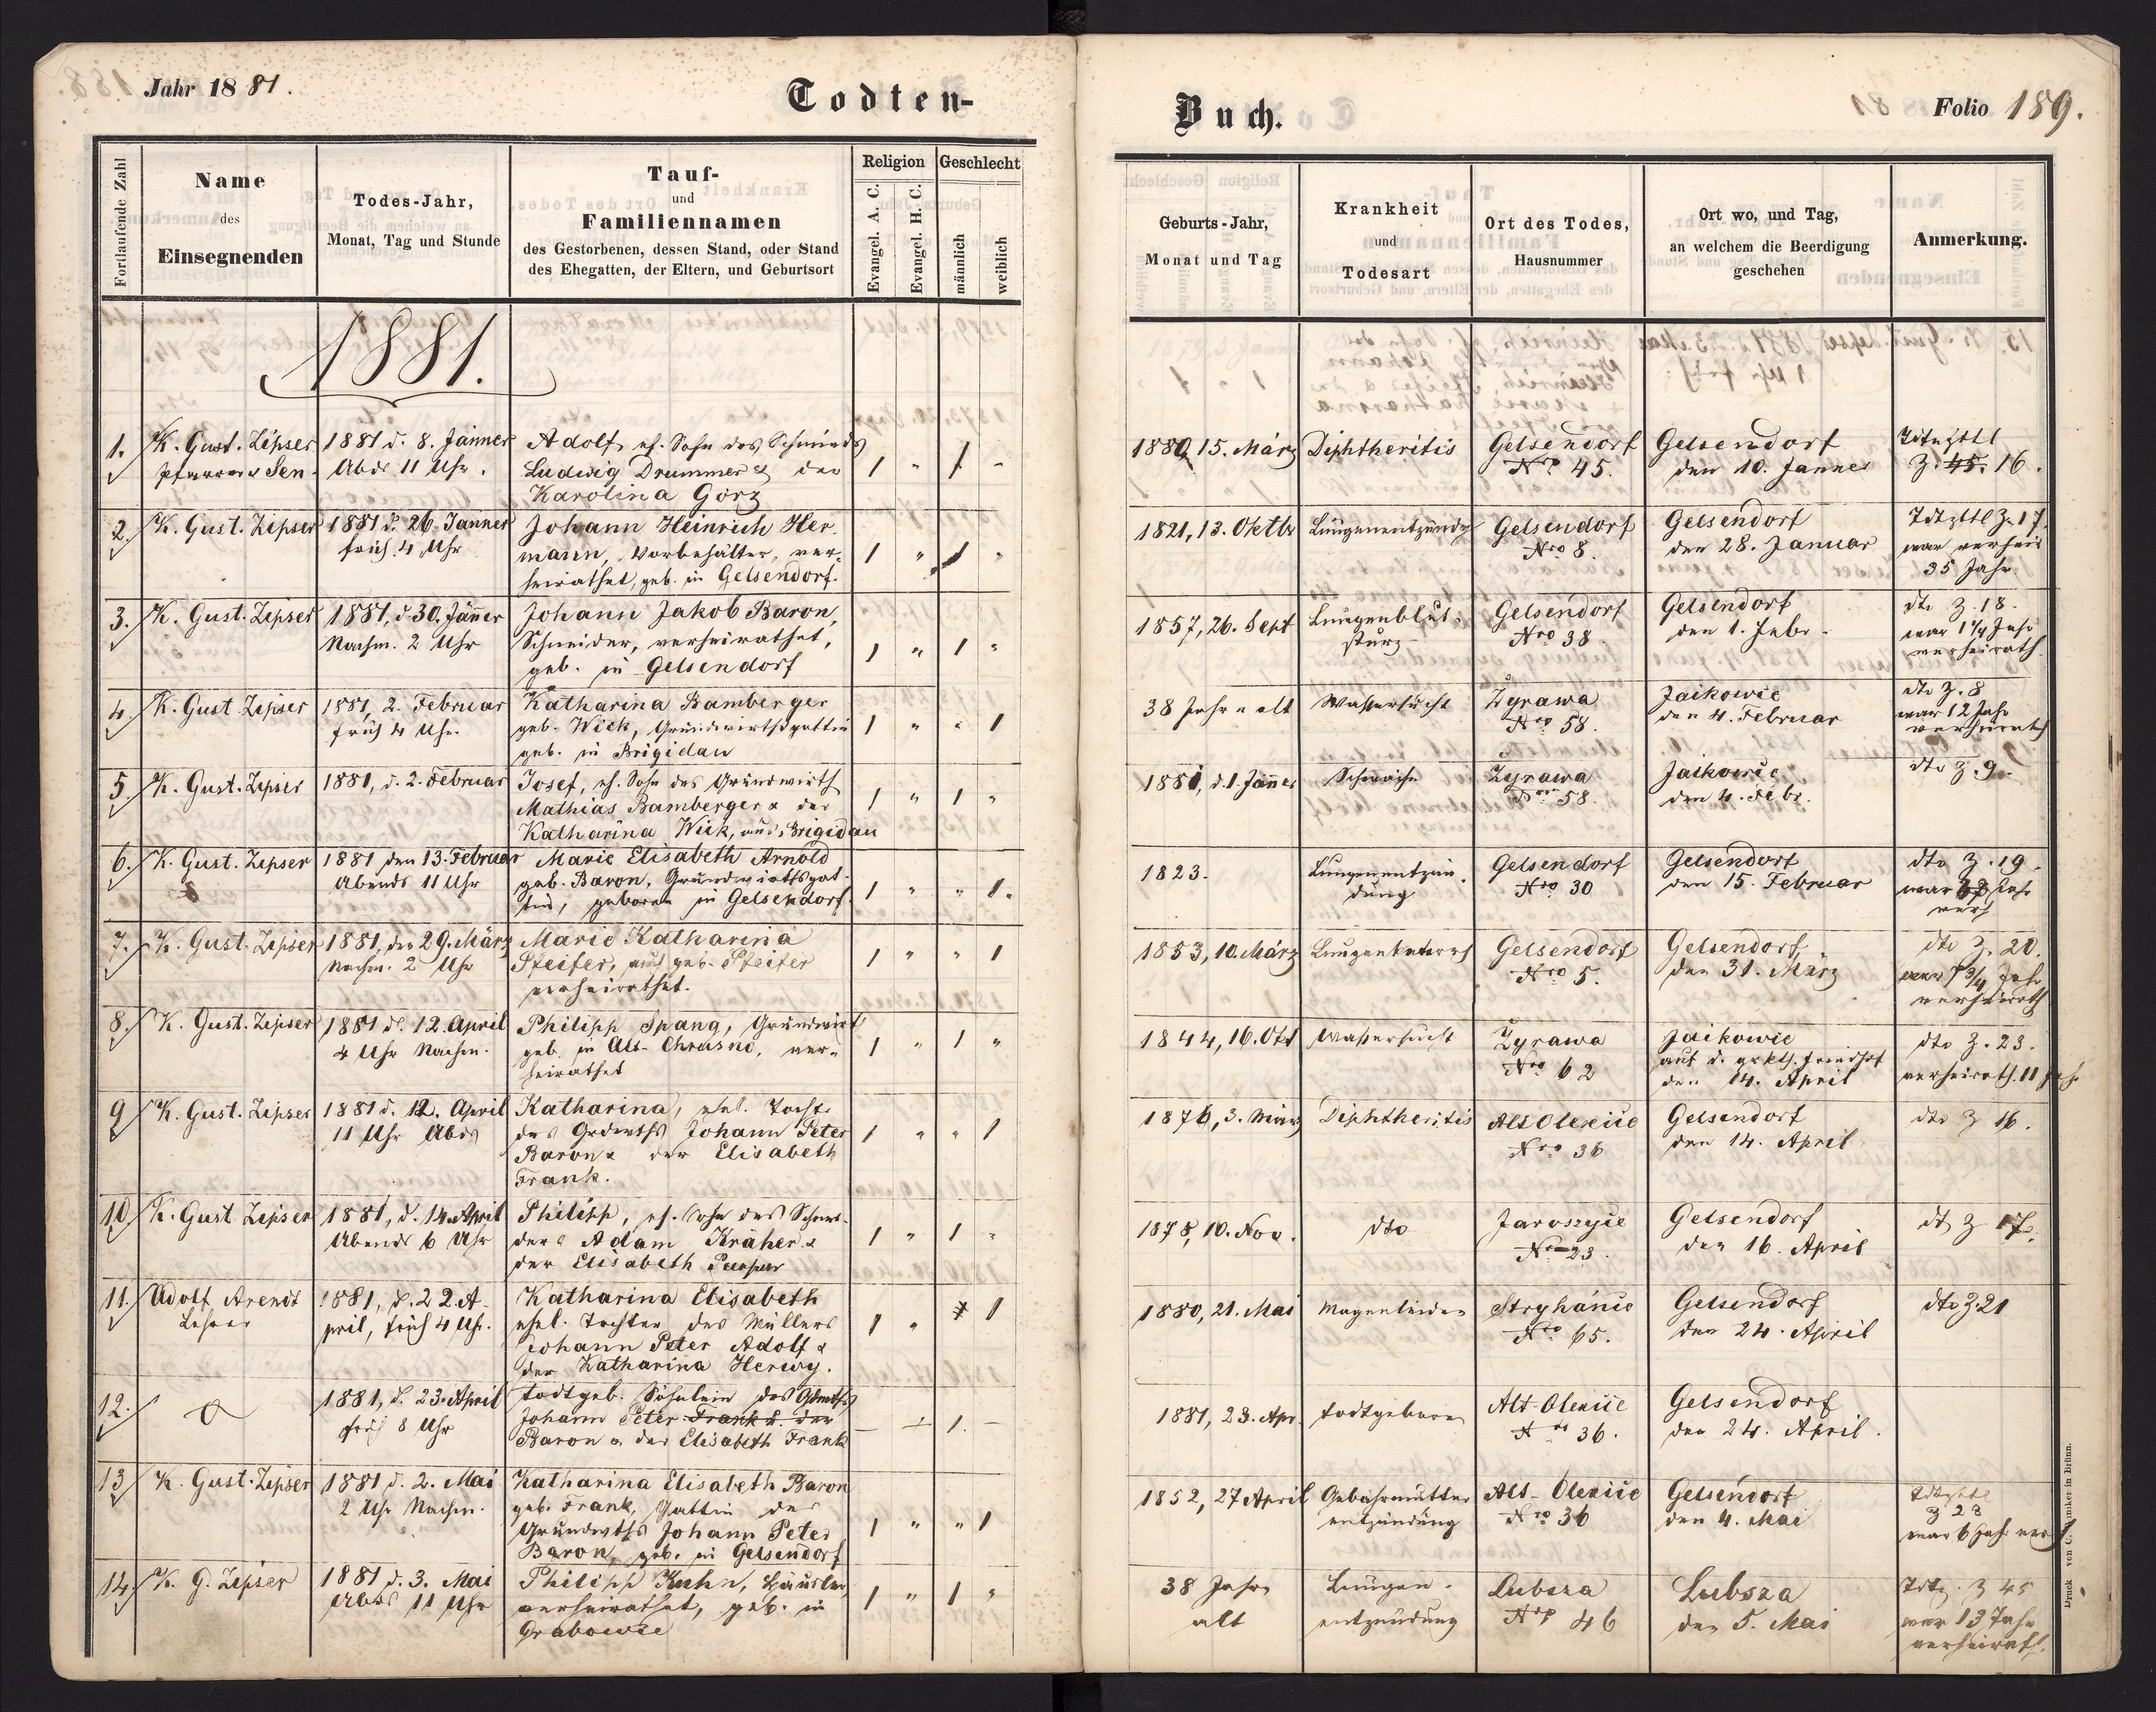 Jahr 1881.
Todten-
Buch.
Folio 189.
Fortlaufende Zahl
Name
des
Einsegnenden
Todes-Jahr,
Monat, Tag und Stunde
Tauf-
und
Familiennamen
des Gestorbenen, dessen Stand, oder Stand
des Ehegatten, der Eltern, und Geburtsort
Religion
Evangel. A. C.
Evangel. H. C.
Geschlecht
männlich
weiblich
Geburts-Jahr,
Monat und Tag
Krankheit
und
Todesart
Ort des Todes,
Hausnummer
Ort wo, und Tag,
an welchem die Beerdigung
geschehen
Anmerkung.
1881.
1. K. Gust. Zipser 1881 d. 8. Jänner Adolf, eh. Sohn des Schmieds 1880 15. März Diphtheritis Gelsendorf Gelsendorf
Pfarrer & Sen. Abds 11 Uhr. Ludwig Drummer & der 1 " 1 " Nro 45. den 10. Jänner Z. 45. 16.
Karolina Görz
2. K. Gust. Zipser 1881 d. 26. Jänner Johann Heinrich Her- 1821, 13. Oktbr Lungenentzündg Gelsendorf Gelsendorf Z. 17.
früh 4 Uhr mann, Vorbehälter, ver- 1 " 1 " Nro 8. den 28. Januar war verheir
heirathet, geb. in Gelsendorf. 35 Jahr
3. K. Gust. Zipser 1881, d. 30. Jänner Johann Jakob Baron, 1857, 26. Sept Lungenblut- Gelsendorf Gelsendorf dto Z. 18.
Nachm. 2 Uhr Schneider, verheirathet, 1 " 1 " sturz Nro 38. den 1. Febr. war 1 1/4 Jahr
geb. in Gelsendorf verheirath
4. K. Gust Zipser 1881, 2. Februar Katharina Bamberger 38 Jahre alt Waßersucht Zyrawa Jaikowie dto Z. 8
früh 4 Uhr. geb. Wick, Grundwirthsgattin 1 " " 1 Nro 58. den 4. Februar war 12 Jahr
geb. in Brigidau verheirath
5. K. Gust. Zipser 1881, d. 2. Februar Josef, eh. Sohn des Grundwirth 1881, d. 1. Jänner Schwäche Zyrawa Jaikowie dto Z. 9.
Mathias Bamberger & der 1 " 1 " Nro 58. den 4. Febr.
Katharina Wick, aus Brigidau
6. K. Gust. Zipser 1881 den 13. Februar Marie Elisabeth Arnold 1823. Lungenentzün- Gelsendorf Gelsendorf dto Z. 19.
Abends 11 Uhr geb. Baron, Grundwirthsgat- 1 " " 1. dung Nro 30 den 15. Februar war Jahr
tin, geboren in Gelsendorf. verh
7. K. Gust. Zipser 1881, den 29. März Marie Katharina 1853, 10. März Lungenkatarrh Gelsendorf Gelsendorf, dto Z. 20.
Nachm. 2 Uhr Pfeifer, auch geb. Pfeifer 1 " " 1 Nro 5. den 31. März war 3/4 Jahr
verheirathet. verheirath
8. K. Gust. Zipser 1881 d. 12. April Philipp Spang, Grundwirt 1844, 16. Okt Waßersucht Zyrawa Jaikowie dto Z. 23.
4 Uhr Nachm. geb. in Alt-Chrusno, ver- 1 " 1 " Nro 62 auf d. grkth. Friedhof verheirath. 11 Jahr
heirathet den 14. April
9 K. Gust. Zipser 1881 d. 12. April Katharina, ehel. Tocht. 1876, 3. März Diphtheritis Alt Olexiie Gelsendorf dto Z 16.
11 Uhr Abds des Grdwrths Johann Peter 1 " " 1 Nro 36 den 14. April
Baron & der Elisabeth
Frank.
10. K. Gust Zipser 1881, d. 14. April Philipp, eh. Sohn des Schnei- 1878, 10. Nov. dto Jaroszyie Gelsendorf dt Z 17.
Abends 6 Uhr ders Adam Kräher & 1 " 1 " No 23. den 16. April
der Elisabeth
11. Adolf Arendt 1881, d. 22. A- Katharina Elisabeth 1880, 21. Mai Magenleiden Stryhánie Gelsendorf dto Z. 21
Lehrer pril, früh 4 Uhr. ehel. Tochter des Müllers 1 " 1 Nro 65. den 24. April
Johann Peter Adolf &
der Katharina Herwy.
12. 1881, d. 23. April todtgeb. Söhnlein des Gdwrths 1881, 23. Apr. todtgeboren Alt-Olexiie Gelsendorf
früh 8 Uhr Johann Peter Frank & der — — 1. — Nro 36. den 24. April.
Baron & der Elisabeth Frank
13 K. Gust. Zipser 1881 d. 2. Mai Katharina Elisabeth Baron 1852, 27 April Gebährmutter Alt-Olexiie Gelsendorf
2 Uhr Nachm. geb. Frank, Gattin des entzündung Nro 36 den 4. Mai Z 28
Grundwths Johann Peter 1 " " 1 war 6 Jahr verh
Baron, geb. in Gelsendorf
14. K. G. Zipser 1881 d. 3. Mai Philipp Kuhn, Häusler, 38 Jahre Lungen- Lubsza Lubsza Z 45
Abds 11 Uhr verheirathet, geb. in 1 " 1 " alt entzündung Nro 46 den 5. Mai war 13 Jahr
Grabowie verheirath.